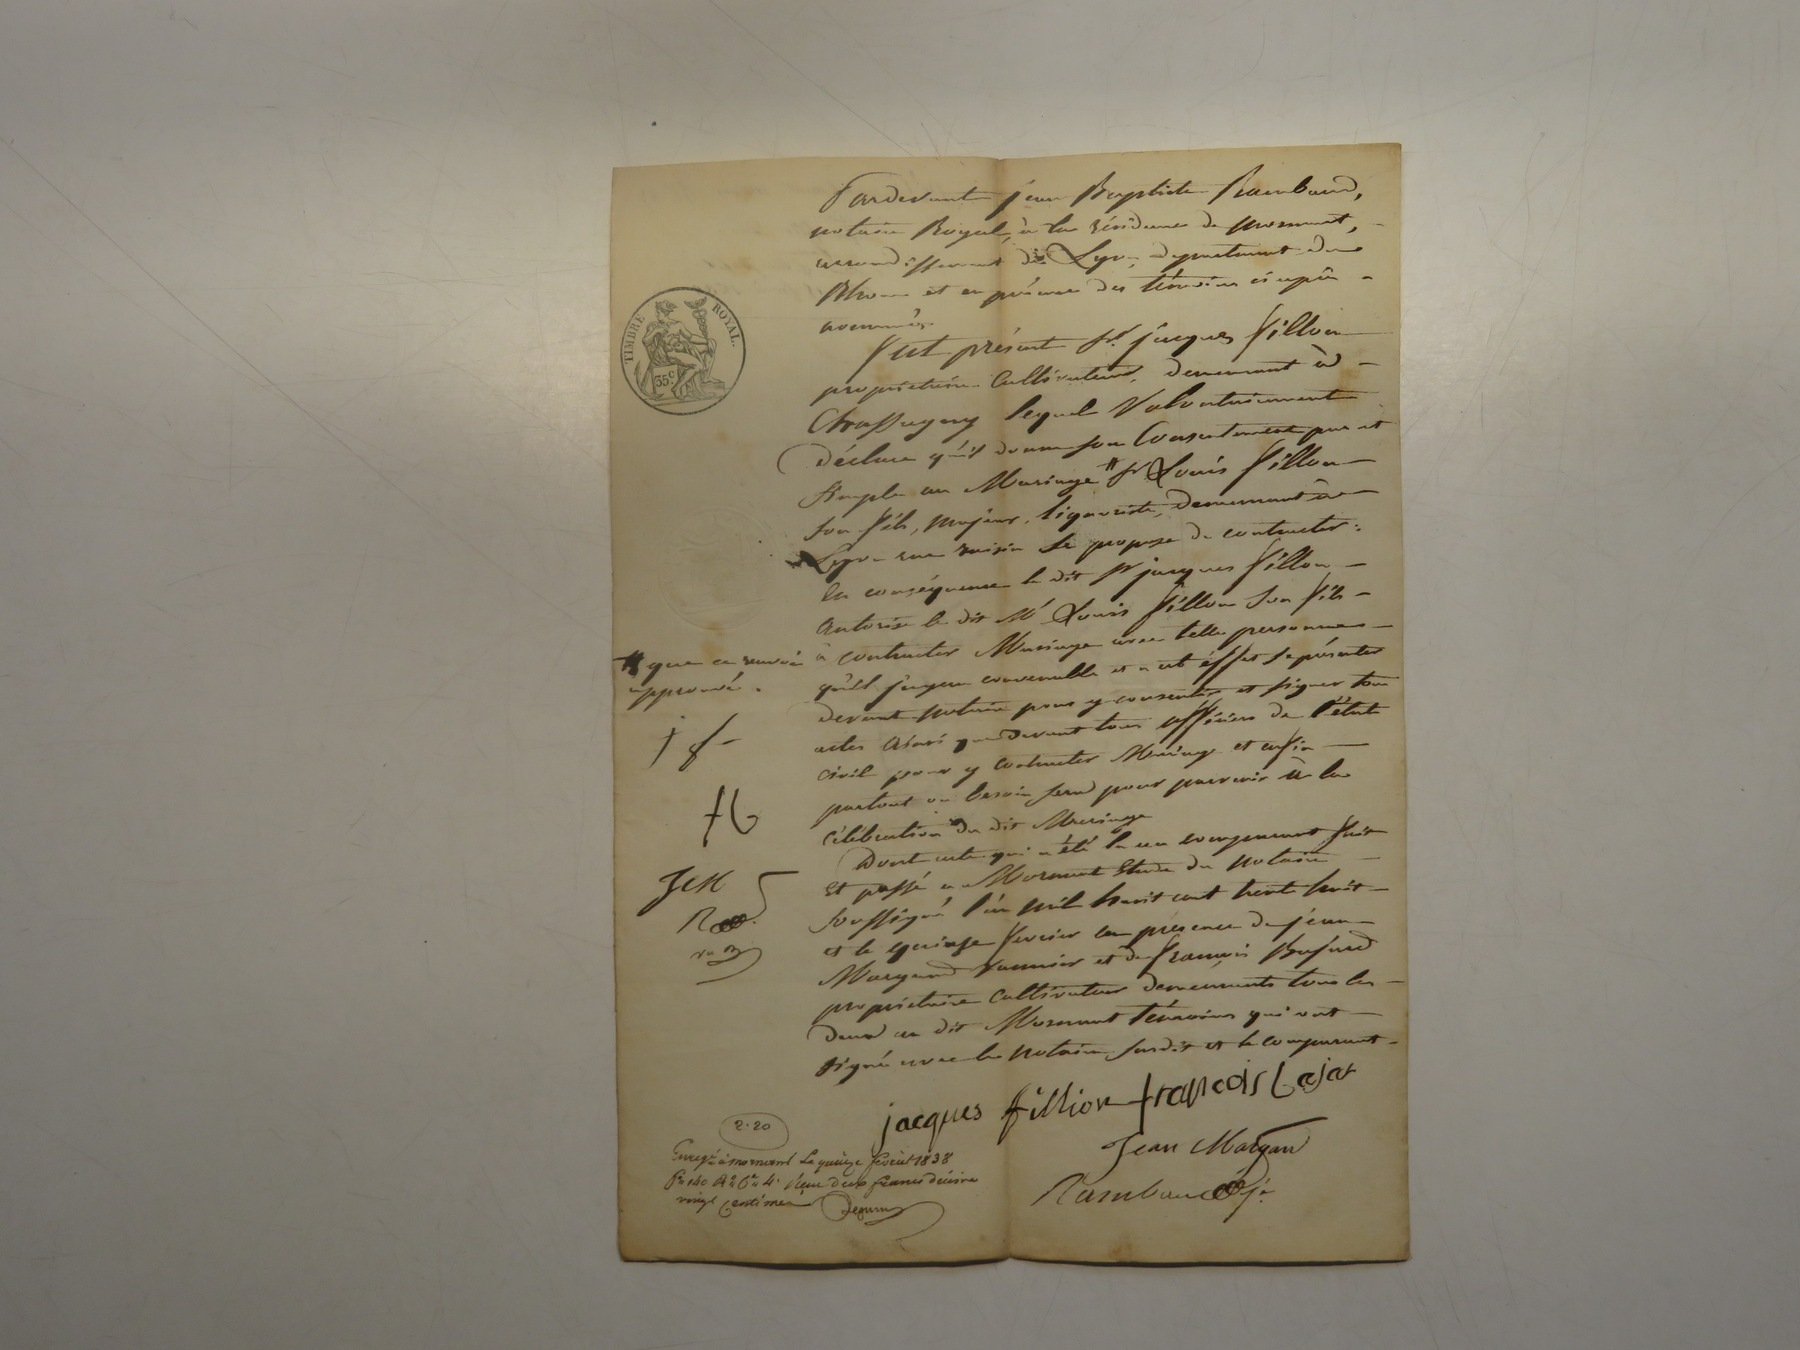 Pardevant jean Baptiste Rambaud,
notaire Royal, à la résidence de mornant,
arrondissement de Lyon, departement du
Rhone et en présence des témoins ci après
nommés.
TIMBRE ROYAL.
35 c
Fut présent Sr. jacques fillion
propriétaire Cultivateur, demeurant à
Chassagny lequel Volontairement
déclare qu'il donne son Consentement pur et
simple au Mariage # Sr Louis fillion
son fils, majeur, liquoriste, demeurant à
Lyon rue raisin se propose de contracter:
En conséquence le dit Sr jacques fillion
autorise le dit Mr Louis fillion son fils
à contracter Mariage avec telle personne
qu'il jugera convenable et à cet éffet se présenter
devant notaire pour y consentir et signer tous
actes ainsi que devant tous officiers de l'état
civil pour y contracter Mariage et enfin
partout ou besoin sera pour parvenir à la
célébration du dit Mariage
# que ce renvoi
approuvé.
j f
f B
J M
R
Dont acte qui a été lu au comparant fait
et passé à Mornant Etude du notaire
soussigné l'an mil huit cent trente huit
et le quinze fevrier en présence de jean
Margand vannier et de françois Bajard
propriétaire cultivateur demeurants tous les
deux au dit Mornant témoins qui ont
signé avec le notaire susdit et le comparant
jacques fillion françois Bajar
Jean Margan
Rambaud
2.20
Enregé à mornant Le quinze fevrier 1838
fo 140 Ro Ce 4. Reçu deux francs décime
vingt centimes